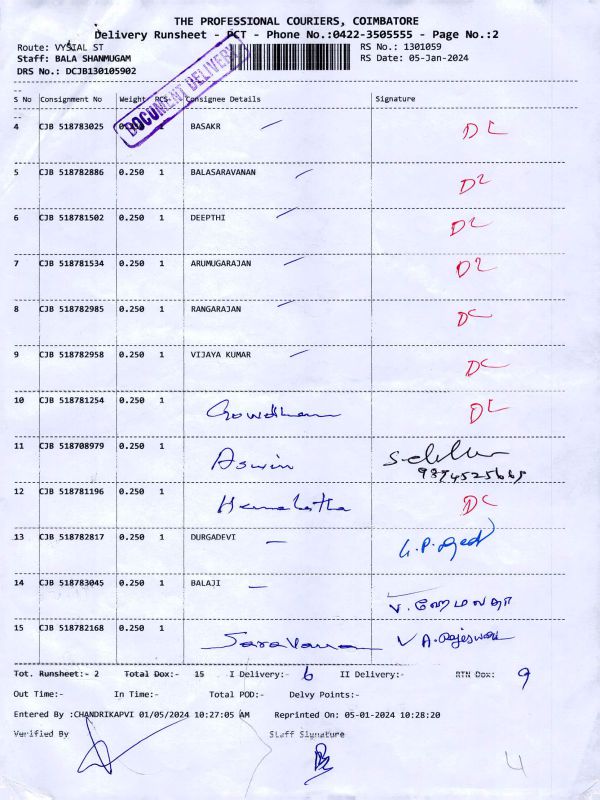 THE PROFESSIONAL COURIERS, COIMBATORE
Delivery Runsheet - PCT - Phone No.:0422-3505555 - Page No.:2
Route: VYSIAL ST RS No.: 1301059
Staff: BALA SHANMUGAM RS Date: 05-Jan-2024
DRS No.: DCJB130105902
DOCUMENT DELIVERY
S No Consignment No Weight PCS Consignee Details Signature
4 CJB 518783025 BASAKR DC
5 CJB 518782886 0.250 1 BALASARAVANAN DL
6 CJB 518781502 0.250 1 DEEPTHI DL
7 CJB 518781534 0.250 1 ARUMUGARAJAN DL
8 CJB 518782985 0.250 1 RANGARAJAN DC
9 CJB 518782958 0.250 1 VIJAYA KUMAR DC
10 CJB 518781254 0.250 1 Gowdham DL
11 CJB 518708979 0.250 1 Aswin
12 CJB 518781196 0.250 1 Hemalatha DC
13 CJB 518782817 0.250 1 DURGADEVI
14 CJB 518783045 0.250 1 BALAJI
15 CJB 518782168 0.250 1 Saravana A. Rajeswari
Tot. Runsheet:- 2 Total Dox:- 15 I Delivery:- 6 II Delivery:- RTN Dox: 9
Out Time:- In Time:- Total POD:- Delvy Points:-
Entered By :CHANDRIKAPVI 01/05/2024 10:27:05 AM Reprinted On: 05-01-2024 10:28:20
Verified By Staff Signature
4